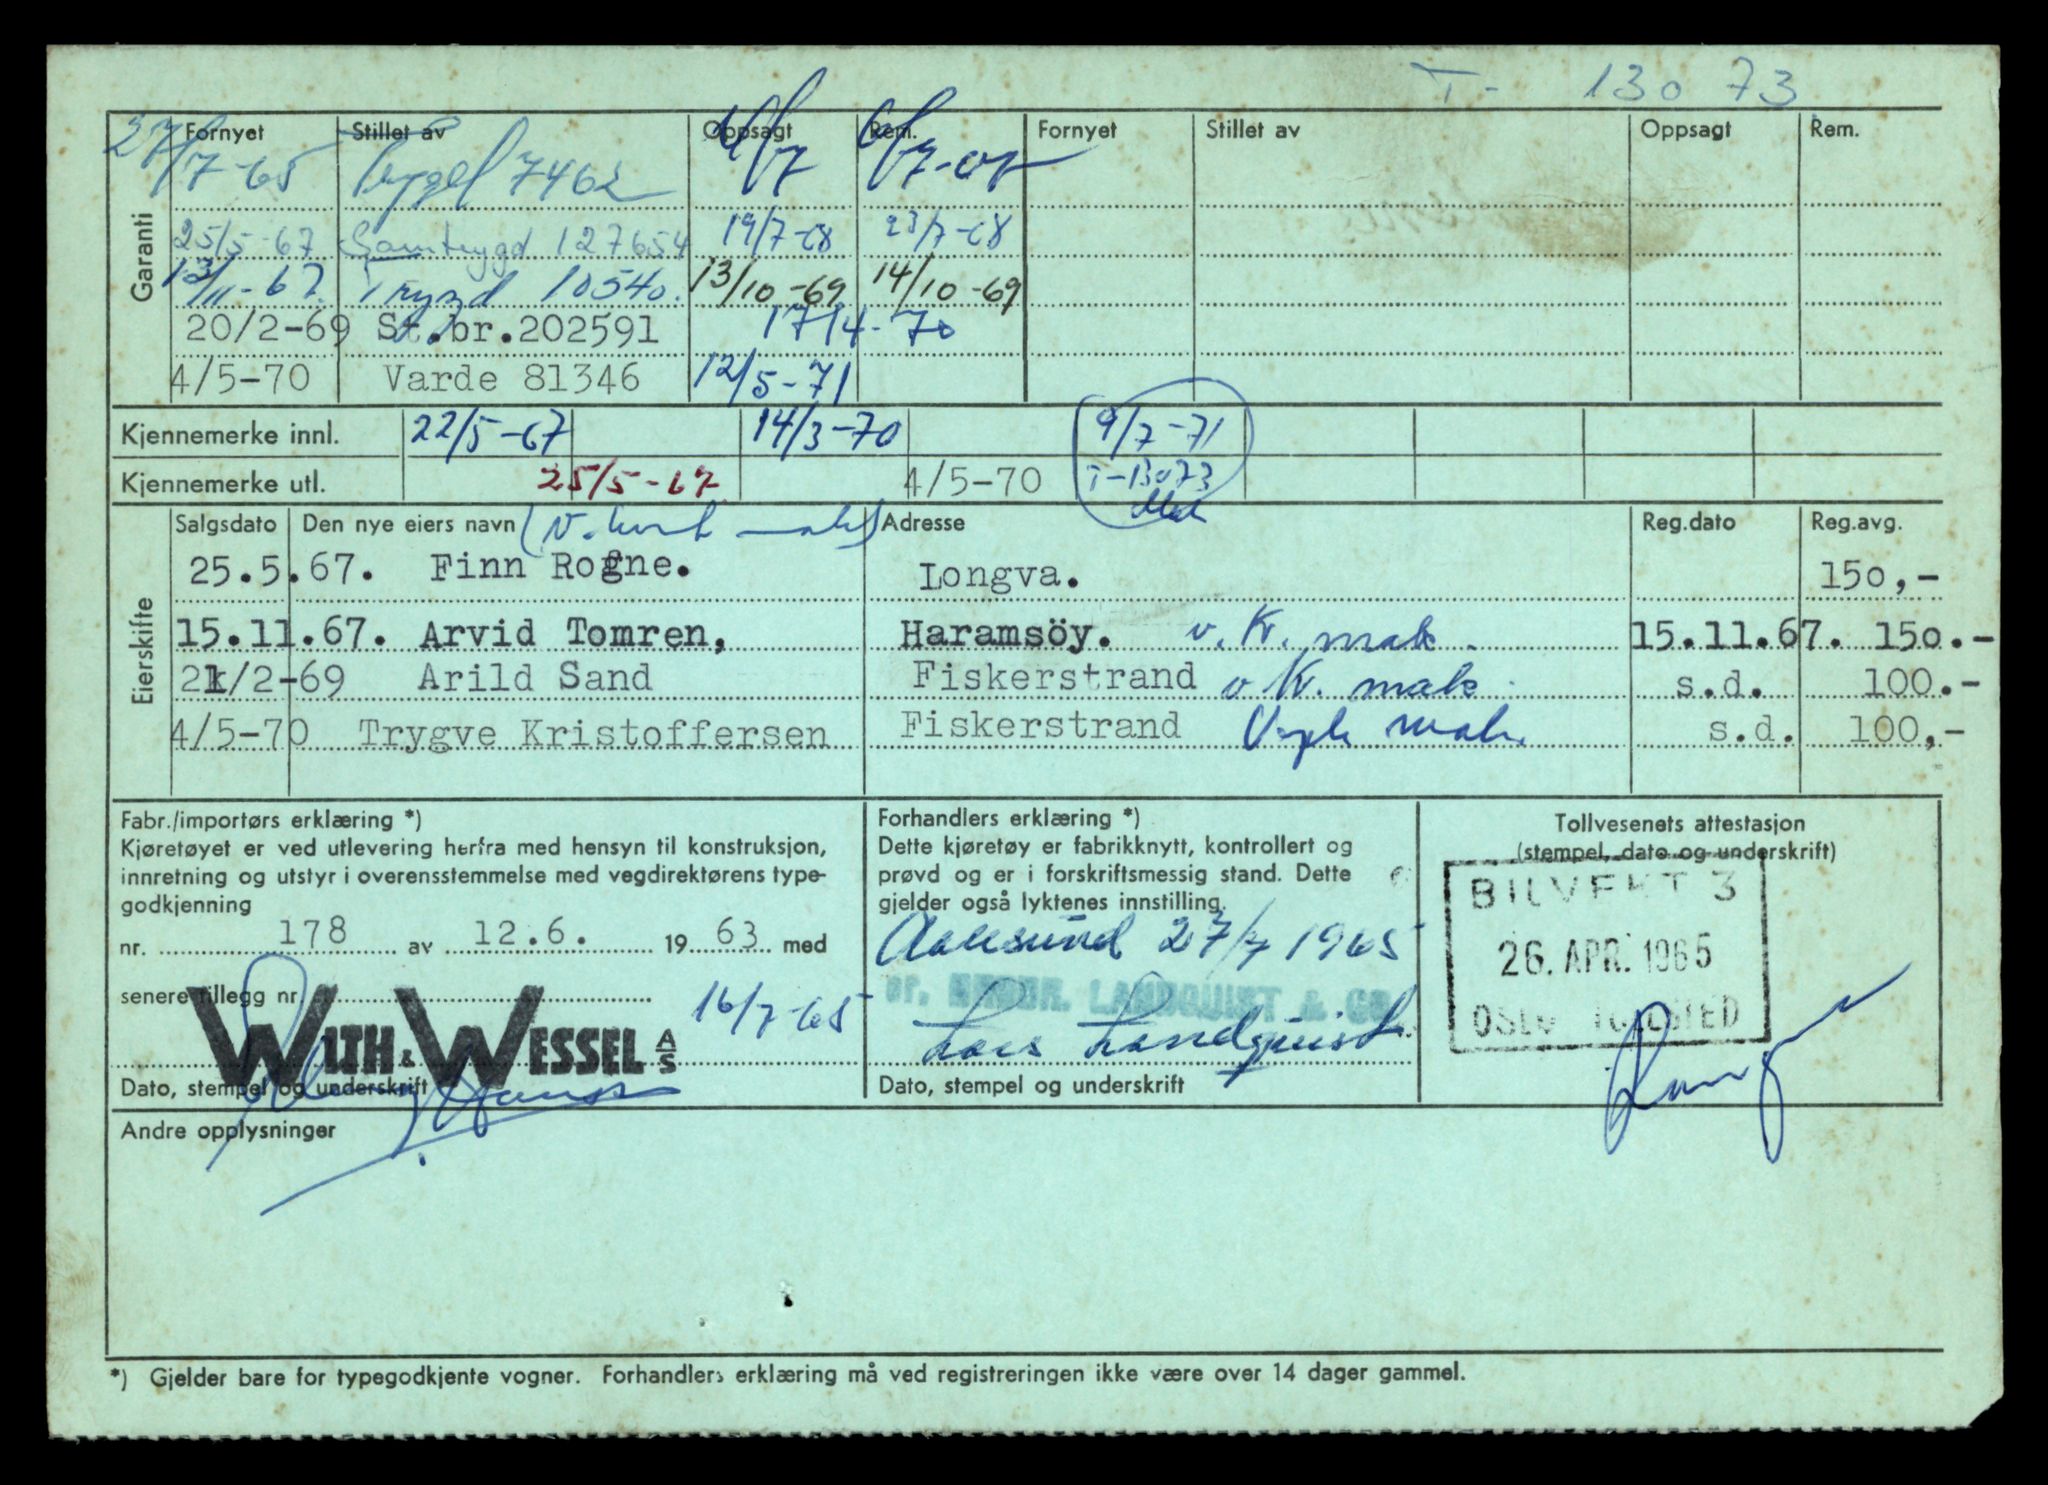 T- 13073
Garanti
Fornyet Stillet av Oppsagt Rem. Fornyet Stillet av Oppsagt Rem.
27/7-65 Trygd 7462
25/5-67 Samtrygd 127654 19/7-68 23/7-68
13/11-67. Trygd 10540. 13/10-69 14/10-69
20/2-69 St.br.202591 17/4-70
4/5-70 Varde 81346 12/5-71
Kjennemerke innl. 22/5-67 14/3-70 9/7-71
Kjennemerke utl. 25/5-67 4/5-70 T-13073
Eierskifte
Salgsdato Den nye eiers navn Adresse Reg.dato Reg.avg.
25.5.67. Finn Rogne. Longva. 150,-
15.11.67. Arvid Tomren, Haramsöy. v. Kv. mak. 15.11.67. 150.-
21/2-69 Arild Sand Fiskerstrand v Kv. mak. s.d. 100.-
4/5-70 Trygve Kristoffersen Fiskerstrand s.d. 100,-
Fabr./importørs erklæring *)
Kjøretøyet er ved utlevering herfra med hensyn til konstruksjon,
innretning og utstyr i overensstemmelse med vegdirektørens type-
godkjenning
nr. 178 av 12.6. 1963 med
senere tillegg nr.
16/7-65
WITH & WESSEL A/S
Dato, stempel og underskrift
Forhandlers erklæring *)
Dette kjøretøy er fabrikknytt, kontrollert og
prøvd og er i forskriftsmessig stand. Dette
gjelder også lyktenes innstilling.
Aalesund 27/7 1965
LANDQUIST & CO
Lars Landquist
Dato, stempel og underskrift
Tollvesenets attestasjon
(stempel, dato og underskrift)
BILVEKT 3
26. APR. 1965
OSLO TOLLSTED
Andre opplysninger
*) Gjelder bare for typegodkjente vogner. Forhandlers erklæring må ved registreringen ikke være over 14 dager gammel.